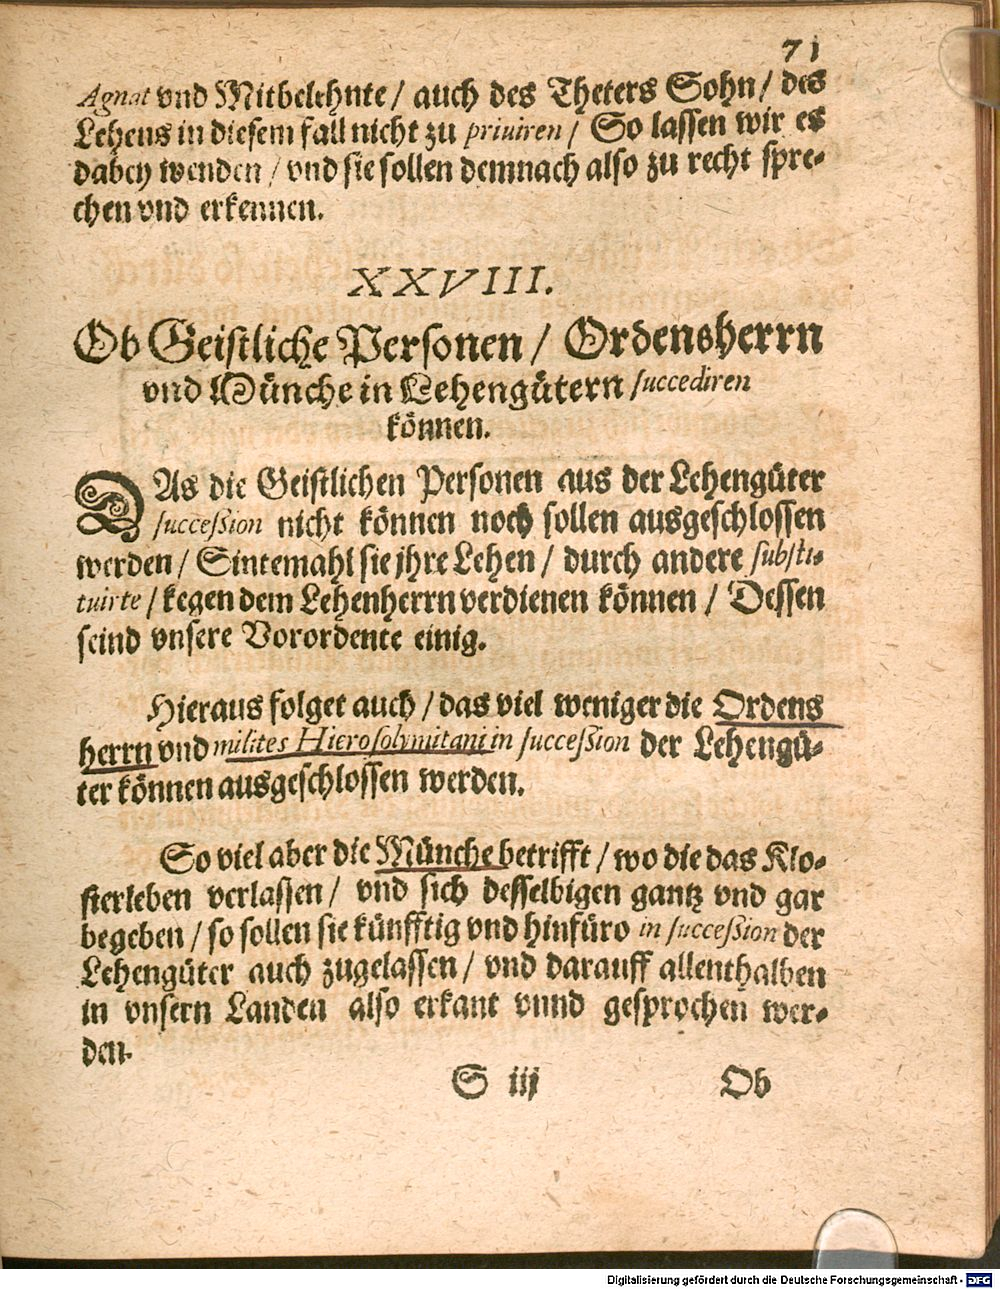 71
Agnat vnd Mitbelehnte / auch des Theters Sohn / des
Lehens in diesem fall nicht zu priuiren / So lassen wir es
dabey wenden / vnd sie sollen demnach also zu recht spre-
chen vnd erkennen.
XXVIII.
Ob Geistliche Personen / Ordensherrn
vnd Münche in Lehengütern succediren
können.
DAs die Geistlichen Personen aus der Lehengüter
succession nicht können noch sollen ausgeschlossen
werden / Sintemahl sie jhre Lehen / durch andere substi-
tuirte / kegen dem Lehenherrn verdienen können / Dessen
seind vnsere Verordente einig.
Hieraus folget auch / das viel weniger die Ordens
herrn vnd milites Hierosolymitani in succession der Lehengü-
ter können ausgeschlossen werden.
So viel aber die Münche betrifft / wo die das Klo-
sterleben verlassen / vnd sich desselbigen gantz vnd gar
begeben / so sollen sie künfftig vnd hinfüro in succession der
Lehengüter auch zugelassen / vnd darauff allenthalben
in vnsern Landen also erkant vnnd gesprochen wer-
den.
S iij Ob
Digitalisierung gefördert durch die Deutsche Forschungsgemeinschaft - DFG